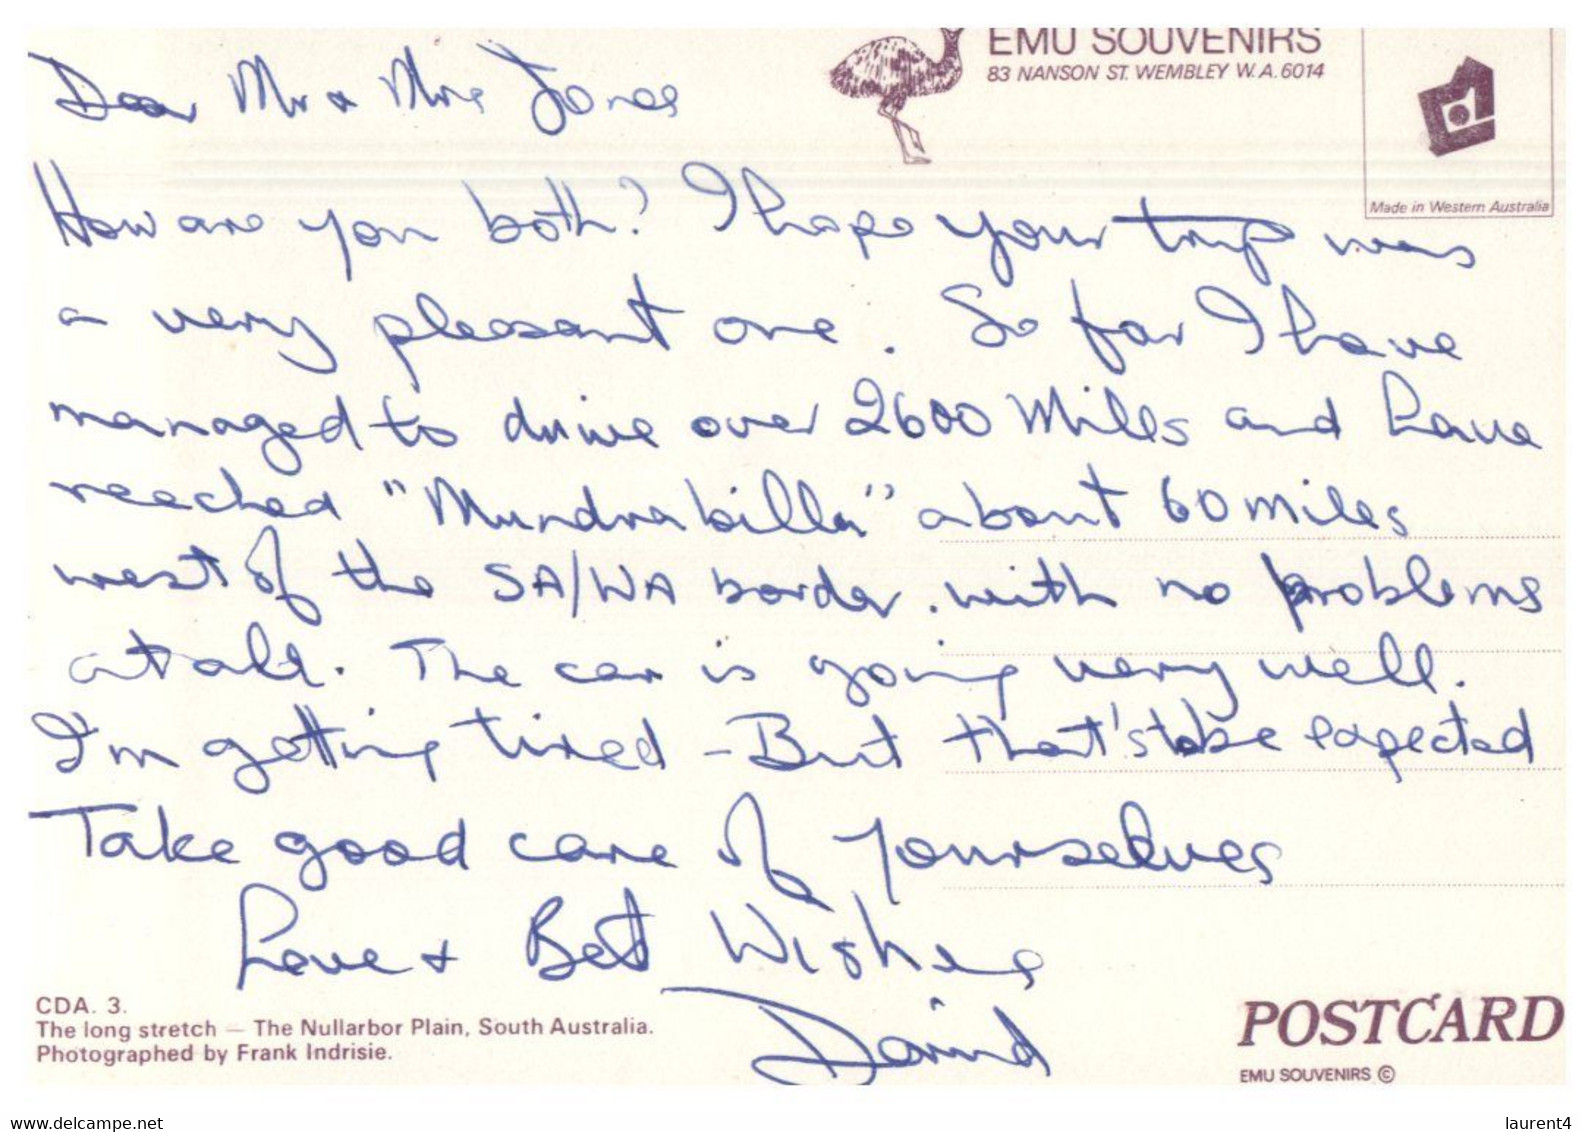 EMU SOUVENIRS
83 NANSON ST. WEMBLEY W.A. 6014
Made in Western Australia
Dear Mr & Mrs Jones
How are you both? I hope your trip was
a very pleasant one. So far I have
managed to drive over 2600 Miles and have
reached "Mundrabilla" about 60 miles
west of the SA/WA border. with no problems
at all. The car is going very well.
I'm getting tired - But that's to be expected
Take good care of yourselves
Love & Best Wishes
David
CDA. 3.
The long stretch — The Nullarbor Plain, South Australia.
Photographed by Frank Indrisie.
POSTCARD
EMU SOUVENIRS ©
www.delcampe.net
laurent4